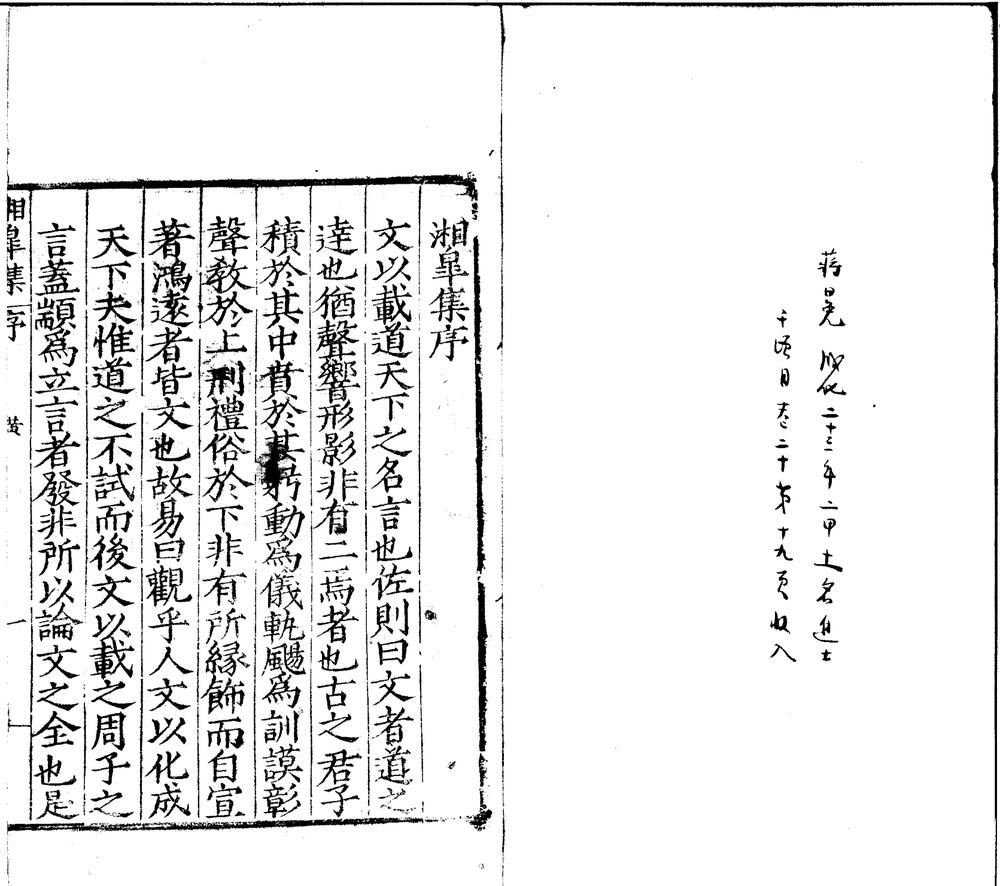 蔣冕 成化二十三年二甲十名進士
千頃目卷二十第十九頁收入
湘臯集序
文以載道天下之名言也佐則曰文者道之
逹也猶聲響形影非有二焉者也古之君子
積於其中賁於其躬動為儀軌颺為訓謨彰
聲敎於上刑禮俗於下非有所緣飾而自宣
著鴻遠者皆文也故易曰觀乎人文以化成
天下夫惟道之不試而後文以載之周子之
言蓋顓為立言者發非所以論文之全也是
湘臯集 序 黃 一